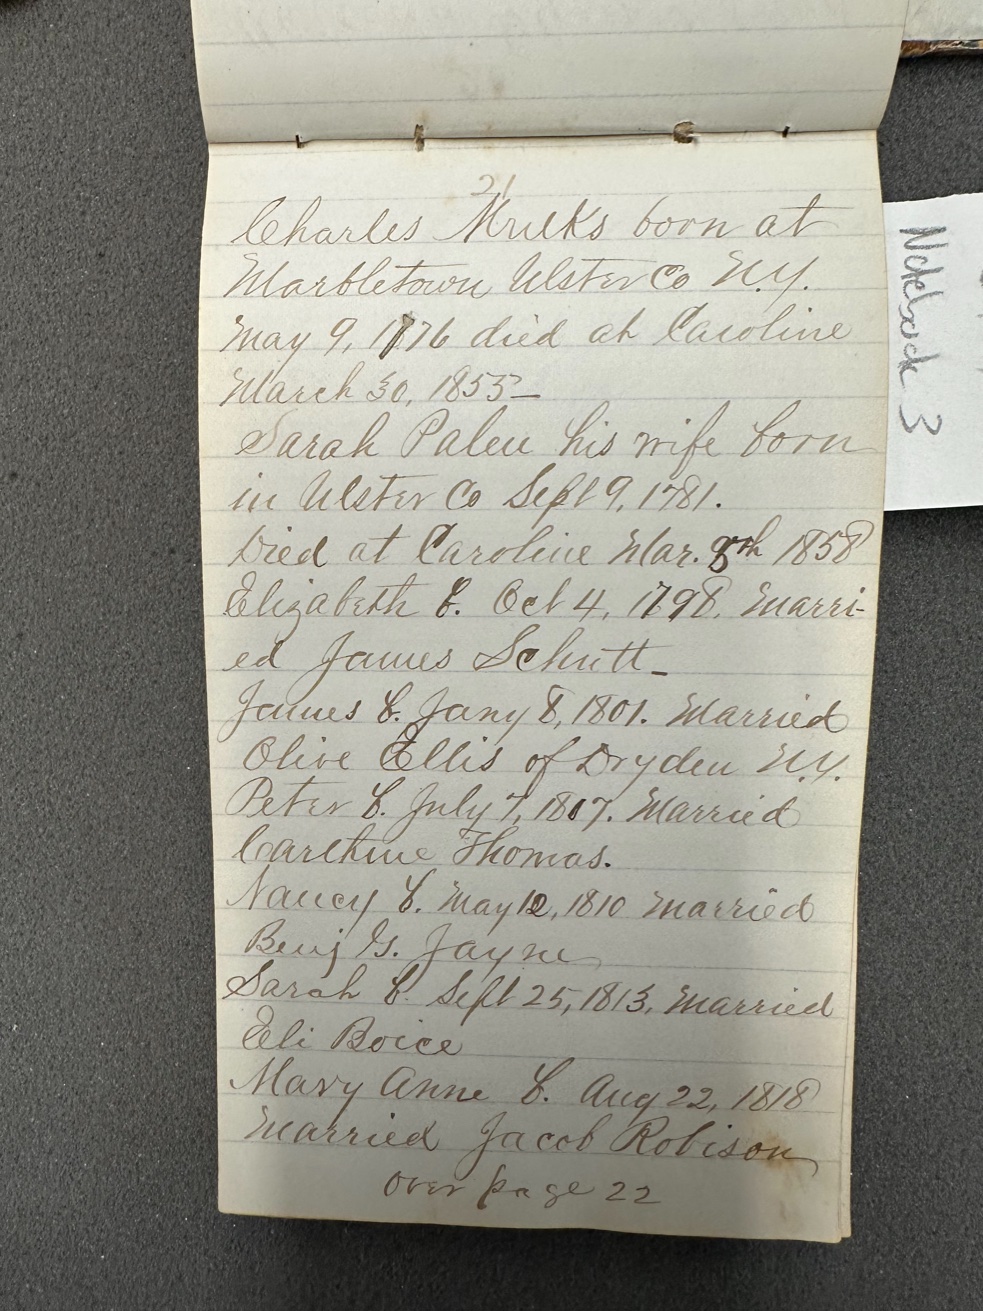 21
Charles Krulks born at
Marbletown Ulster Co N.Y.
May 9, 1776 died at Caroline
March 30, 1853
Sarah Palen his wife born
in Ulster Co Sept 9, 1781.
Died at Caroline Mar. 8th 1858
Elizabeth b. Oct 4, 1798. Marri-
ed James Schutt
James b. Jany 8, 1801. Married
Olive Ellis of Dryden N.Y.
Peter b. July 7, 1807. Married
Carthine Thomas.
Nancy b. May 12, 1810 Married
Benj G. Jayne
Sarah b. Sept 25, 1813. Married
Eli Boice
Mary Anne b. Aug 22, 1818
Married Jacob Robison
over page 22
Notebook 3